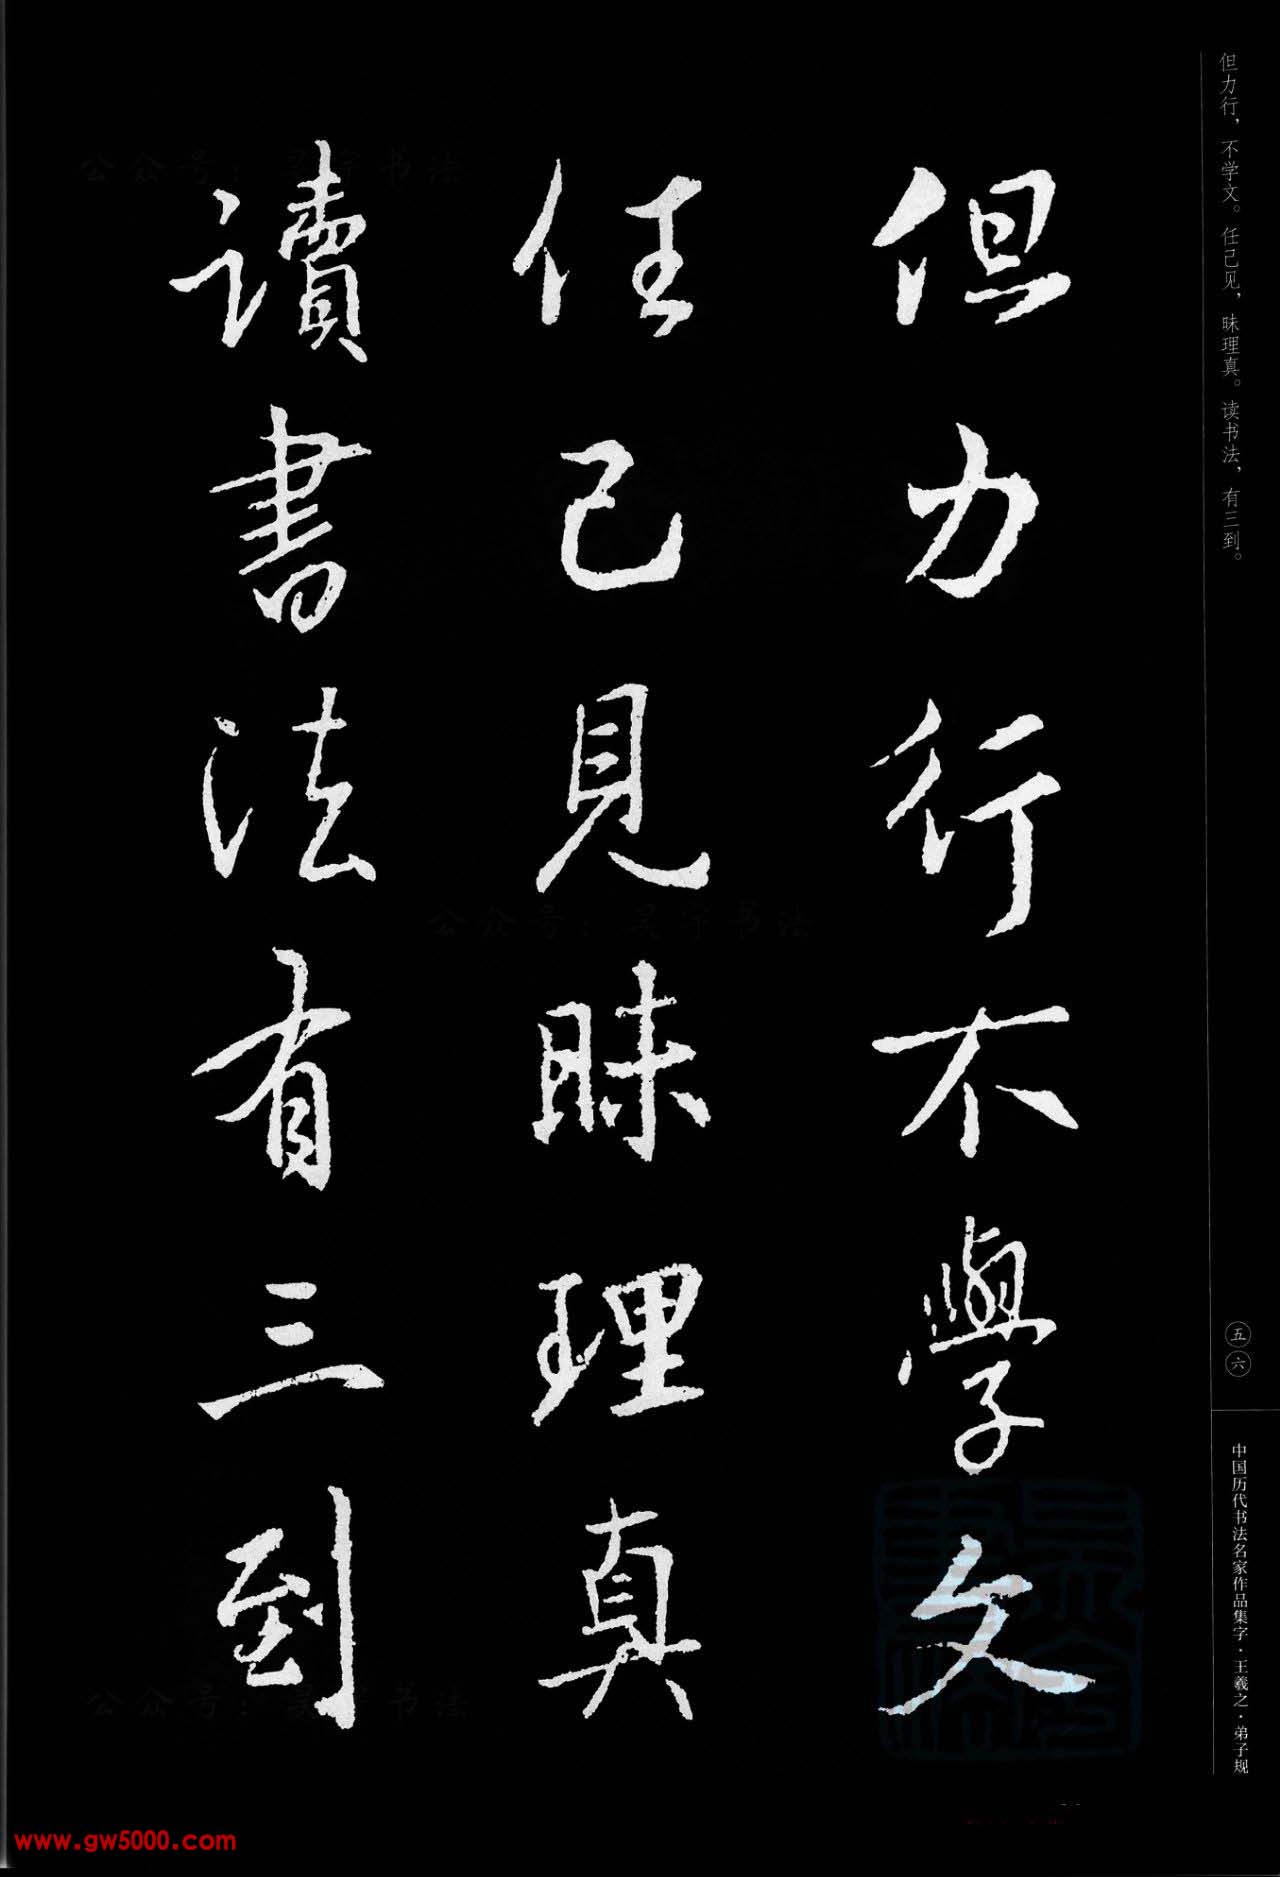 但力行，不学文。任己见，昧理真。读书法，有三到。
但力行不學文
任己見昧理真
讀書法有三到
五六
中国历代书法名家作品集字·王羲之·弟子规
公众号：灵宇书法
公众号：灵宇书法
公众号：灵宇书法
www.gw5000.com